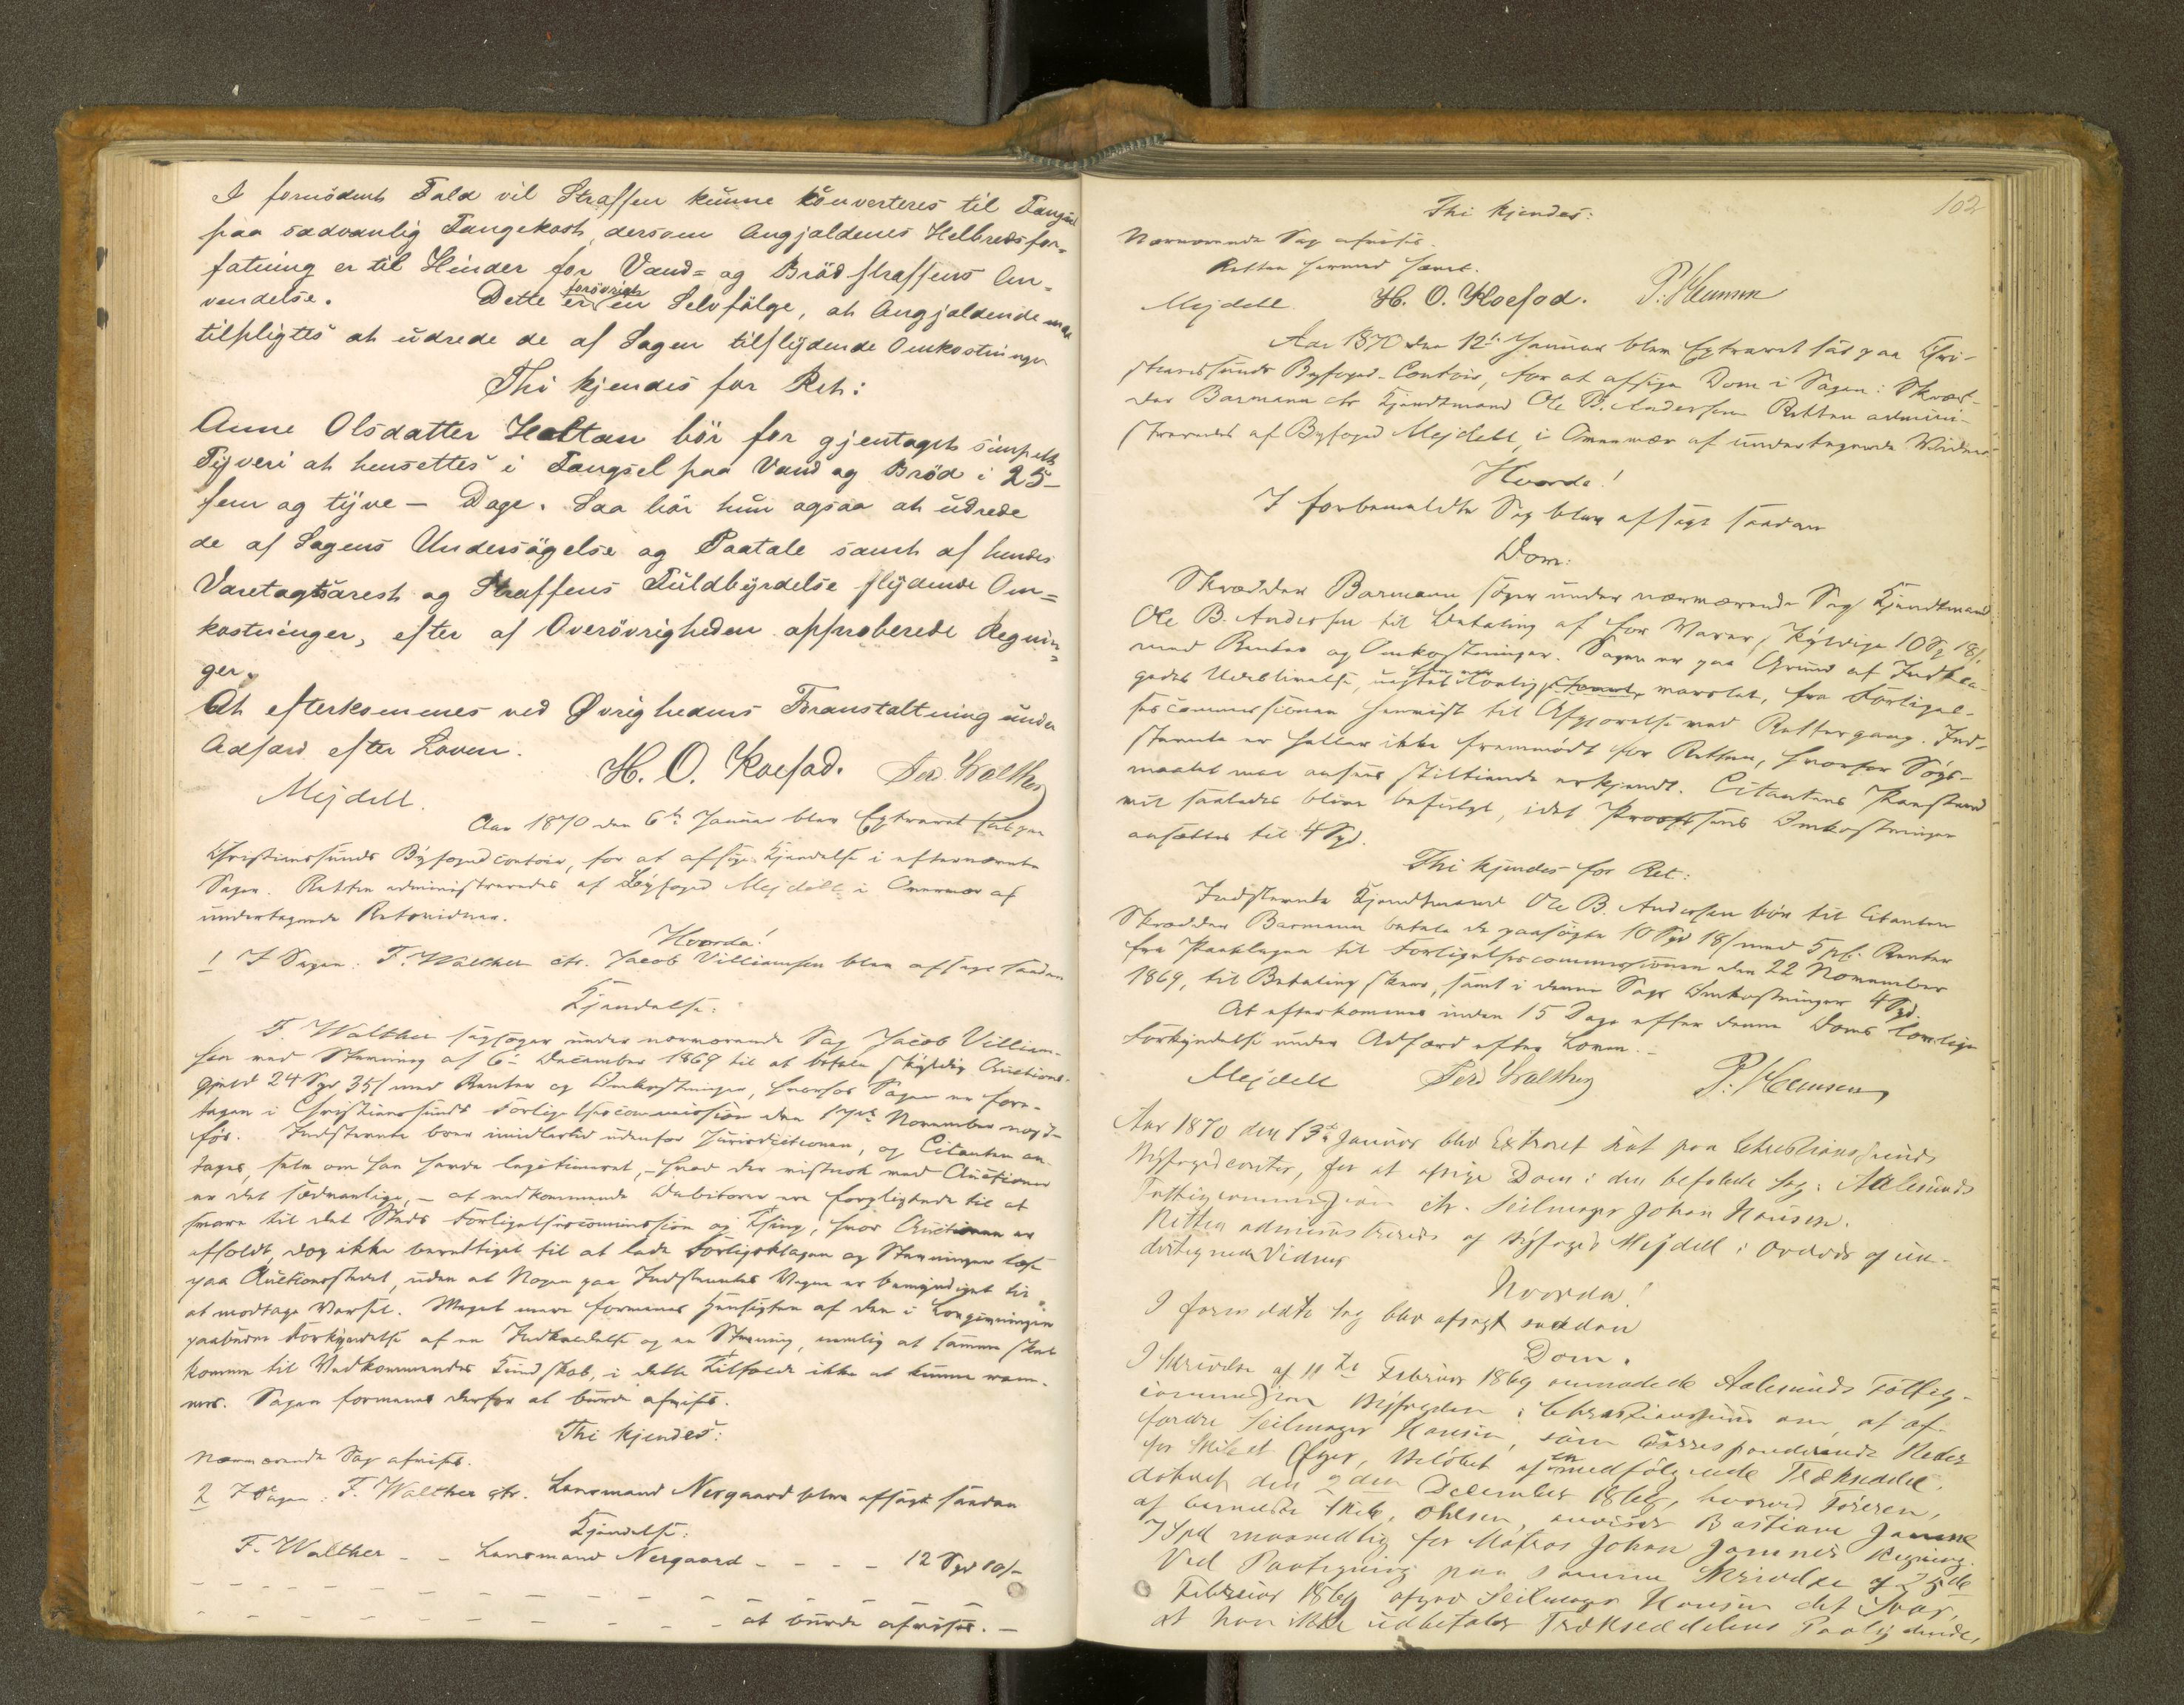 I fornödent Fald vil Straffen kunne konverteres til Fængsel
paa sædvanlig Fangekost, dersom Angjældenes Helbredsfor-
fatning er til Hinder for Vand- og Brödstraffens An-
vendelse. Dette er forövrigt en Selvfölge, at Angjældende maa
tilpligtes at udrede de af Sagen tilflydende Omkostninger
Thi kjendes for Ret:
Anne Olsdatter Haltan bör for gjentaget simpelt
Tyveri at hensættes i Fængsel paa Vand og Bröd i 25-
fem og tyve - Dage. Saa bör hun ogsaa at udrede
de af Sagens Undersögelse og Paatale samt af hendes
Varetægtsarest og Straffens Fuldbyrdelse flydende Om-
kostninger, efter af Overövrigheden approberede Regnin-
ger.
At efterkommes ved Øvrighedens Foranstaltning under
Adfærd efter Loven.
H. O. Koefod. Ferd. Walther
Mejdell.
Aar 1870 den 6te Januar blev Extraret sat paa
Christianssunds Byfogedcontoir, for at afsige Kjendelse i efternævnte
Sager. Retten administreredes af Byfoged Mejdell i Overvær af
undertegnede Retsvidner.
Hvorda!
1 I Sagen: F. Walther ctr. Jacob Villiamsen blev afsagt saadan
Kjendelse:
F. Walther sagsöger under nærværende Sag Jacob Villiam-
sen med Stævning af 6te December 1869 til at betale skyldig Auctions-
gjæld 24 Spd 35 s med Renter og Omkostninger, hvorfor Sagen er fore-
tagen i Christianssunds Forligelsescommission den 17de November næst-
för. Indstævnte boer imidlertid udenfor Jurisdictionen, og Citanten an-
tages, selv om han havde legitimeret, - hvad der vistnok ved Auctioner
er det sædvanlige, - at vedkommende Debitorer ere forpligtede til at
svare til det Steds Forligelsescommission og Thing, hvor Auctionen er
afholdt, dog ikke berettiget til at lade Forligsklagen og Stævningen læse
paa Auctionsstedet, uden at Nogen paa Indstævntes Vegne er bemyndiget til
at modtage Varsel. Meget mere formenes Hensigten af den i Lovgivningen
paabudne Forkyndelse af en Indkaldelse og en Stævning, nemlig at samme skal
komme til Vedkommendes Kundskab, i dette Tilfælde ikke at kunne være
naaet. Sagen formenes derfor at burde afvises.
Thi kjendes:
Nærværende Sag afvises.
2 I Sagen: F. Walther ctr. Lensmand Nergaard blev afsagt saadan
Kjendelse:
F. Walther - - Lensmand Nergaard - - - - 12 Spd 10 s -
- - - - - - - - - - - -
- - - - - - - - at burde afvises. -
102
Thi kjendes:
Nærværende Sag afvises.
Retten hermed hævet.
Mejdell. H. O. Koefod. P. Clemmsen
Aar 1870 den 12te Januar blev Extraret sat paa Chri-
stianssunds Byfoged-Contoir, for at afsige Dom i Sagen: Skræd-
der Barmann ctr Kjøbmand Ole B. Andersen Retten admini-
streredes af Byfoged Mejdell, i Overvær af undertegnede Vidner
Hvorda!
I forbemeldte Sag blev afsagt saadan
Dom:
Skrædder Barmann söger under nærværende Sag Kjøbmand
Ole B. Andersen til Betaling af for Varer skyldige 10 Spd 18 s
med Renter og Omkostninger. Sagen er paa Grund af Indkla-
gedes Udeblivelse, uagtet han var lovlig varslet, fra Forligel-
sescommissionen henvist til Afgjörelse ved Rettergang. Ind-
stævnte er heller ikke fremmödt for Retten, hvorfor Sögs-
maalet maa ansees stiltiende erkjendt. Citantens Paastand
vil saaledes blive befulgt, idet Processens Omkostninger
ansættes til 4 Spd.
Thi kjendes for Ret:
Indstævnte Kjøbmand Ole B. Andersen bör til Citanten
Skrædder Barmann betale de paasögte 10 Spd 18 s med 5 pCt. Renter
fra Paaklagen til Forligelsescommissionen den 22 November
1869, til Betaling skeer, samt i denne Sags Omkostninger 4 Spd.
At efterkommes inden 15 Dage efter denne Doms lovlige
Forkyndelse under Adfærd efter Loven. -
Mejdell Ferd Walther P. Clemmsen
Aar 1870 den 13de Januar blev Extraret sat paa Christianssunds
Byfogedcontor, for at afsige Dom i den befalede Sag: Aalesunds
Fattigcommission ctr. Seilmager Johan Hansen.
Retten administreredes af Byfoged Mejdell i Overvær af un-
dertegnede Vidner
Hvorda!
I formeldte Sag blev afsagt saadan
Dom.
I Skrivelse af 11te Februar 1869 anmodede Aalesunds Fattig-
commission Byfogden i Christianssund om, at af-
fordre Seilmager Hansen, som corresponderende Reder
for Skibet Ørger, Belöbet af en medfölgende Trækseddel,
dateret den 2den December 1868, hvorved Föreren,
af bemeldte Skib, Ohlsen, anviser Bastiane Jamne
7 Spd maanedlig for Matros Johan Jamnes Regning.
Ved Paategning paa samme Skrivelse af 25de
Februar 1869 afgav Seilmager Hansen det Svar,
at han ikke udbetaler Trækseddelens Paalydende,